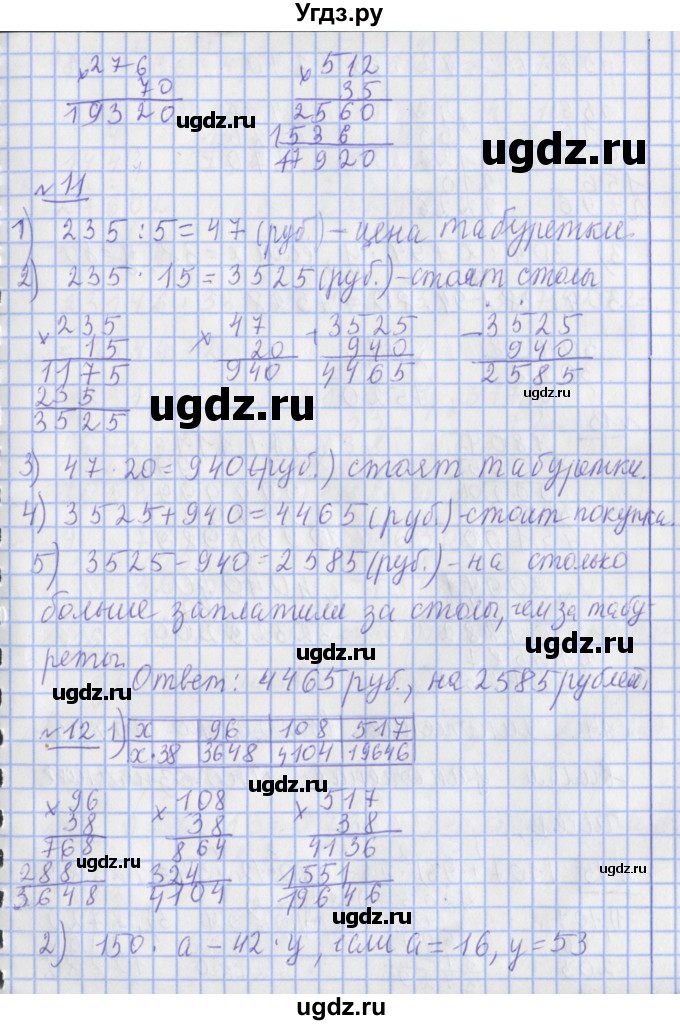 Угдз.ру
×276 ×512
70 35
19320 2560
1536
17920
№11
1) 235 : 5 = 47 (руб) - цена табуретки.
2) 235 · 15 = 3525 (руб.) - стоят столы
×235 ×47 +3525 -3525
15 20 940 940
1175 940 4465 2585
235
3525
3) 47 · 20 = 940 (руб.) стоят табуретки.
4) 3525 + 940 = 4465 (руб.) - стоит покупка.
5) 3525 - 940 = 2585 (руб.) - на столько
больше заплатили за столы, чем за табу-
реты.
Ответ: 4465 руб., на 2585 рублей.
№12 1) x 96 108 517
x·38 3648 4104 19646
×96 ×108 ×517
38 38 38
768 864 4136
288 324 1551
3648 4104 19646
2) 150 · a - 42 · y, если a = 16, y = 53
ugdz.ru
ugdz.ru
ugdz.ru
ugdz.ru
ugdz.ru
ugdz.ru
ugdz.ru
ugdz.ru
ugdz.ru
ugdz.ru
ugdz.ru
ugdz.ru
ugdz.ru
ugdz.ru